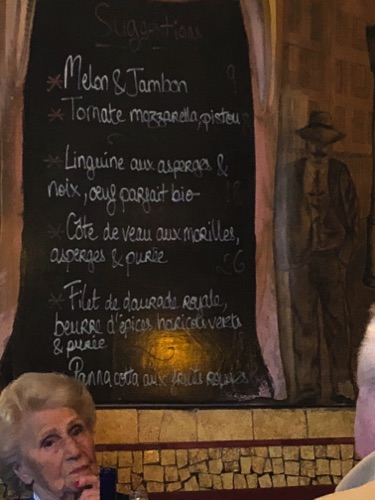 Suggestions
* Melon & Jambon 9
* Tomate mozzarella, pistou
* Linguine aux asperges &
noix, oeuf parfait bio 18
* Côte de veau aux morilles,
asperges & purée 26
* Filet de daurade royale,
beurre d'épices haricots verts
& purée
Panna cotta aux fruits rouges